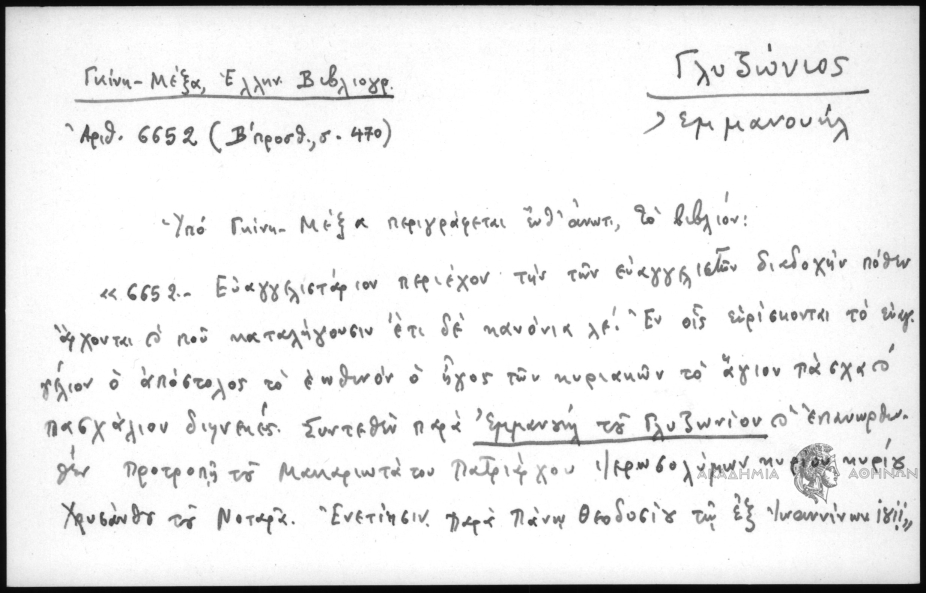 Γκίνη-Μέξα, Ἑλλην. Βιβλιογρ.
Γλυζώνιος
Ἐμμανουήλ
Ἀριθ. 6652 (Β΄ προσθ., σ. 470)
Ὑπό Γκίνη-Μέξα περιγράφεται ἔνθ' ἀνωτ., τό βιβλίον:
«6652.- Εὐαγγελιστάριον περιέχον τὴν τῶν εὐαγγελιστῶν διαδοχὴν πόθεν
ἄρχονται ϗ ποῦ καταλήγουσιν ἔτι δὲ κανόνια λέ. Ἐν οἷς εὑρίσκονται τὸ εὐαγ-
γέλιον ὁ ἀπόστολος τὸ ἑωθινόν ὁ ἦχος τῶν κυριακῶν τὸ ἅγιον πάσχα ϗ
πασχάλιον διηνεκές. Συντεθὲν παρὰ Ἐμμανουὴλ τοῦ Γλυζωνίου ϗ ἐπανωρθω-
θὲν προτροπῇ τοῦ Μακαριωτάτου Πατριάρχου Ἱεροσολύμων κυρίου κυρίου
Χρυσάνθου τοῦ Νοταρᾶ. Ἐνετίησιν παρὰ Πάνῳ Θεοδοσίου τῷ ἐξ Ἰωαννίνων
ΑΚΑΔΗΜΙΑ ΑΘΗΝΩΝ